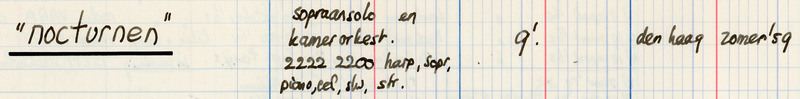 "nocturnen"
sopraansolo en
kamerorkest.
2222 2200 harp, sopr,
piano, cel, slw, str.
9'.
den haag zomer '59